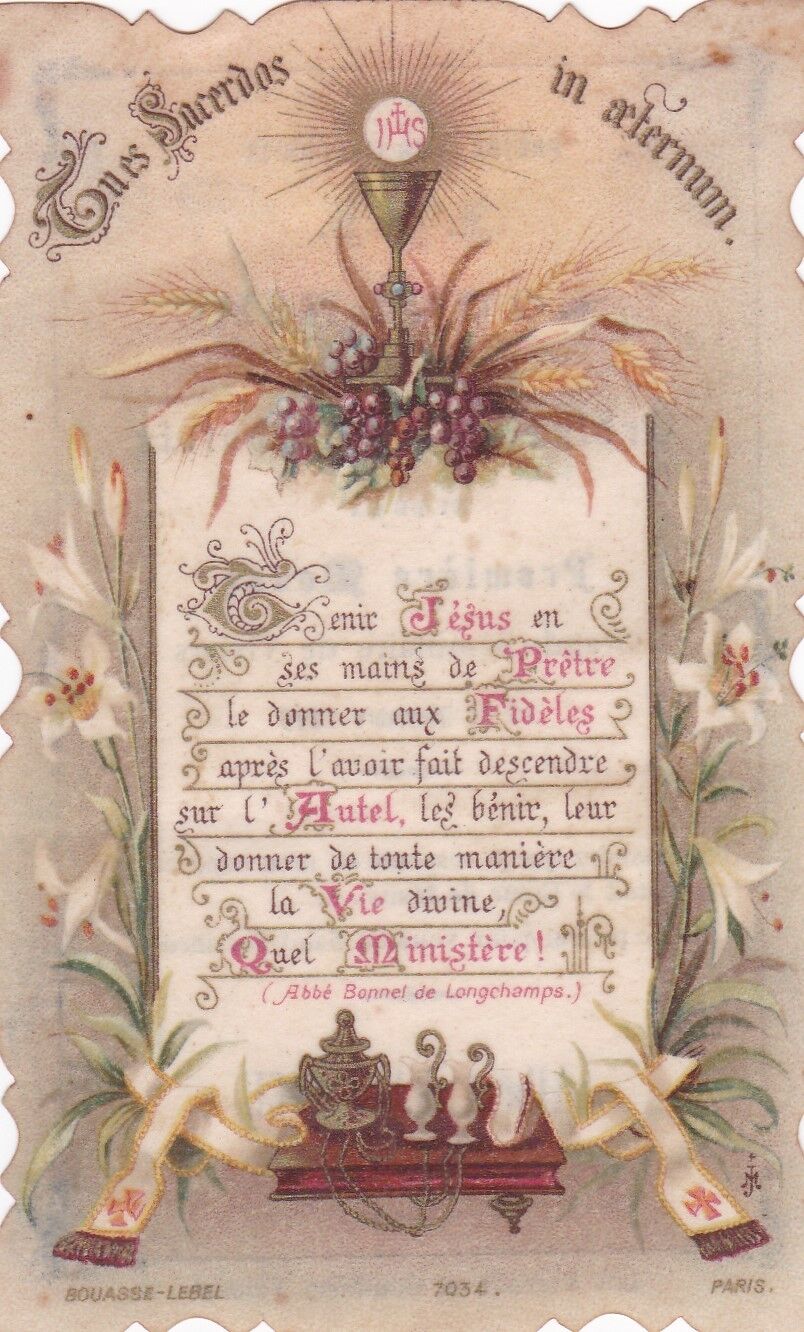 Tu es Sacerdos in æternum.
IHS
Tenir Jésus en
ses mains de Prêtre
le donner aux Fidèles
après l'avoir fait descendre
sur l'Autel, les bénir, leur
donner de toute manière
la Vie divine,
Quel Ministère!
(Abbé Bonnel de Longchamps.)
BOUASSE-LEBEL 7034. PARIS.